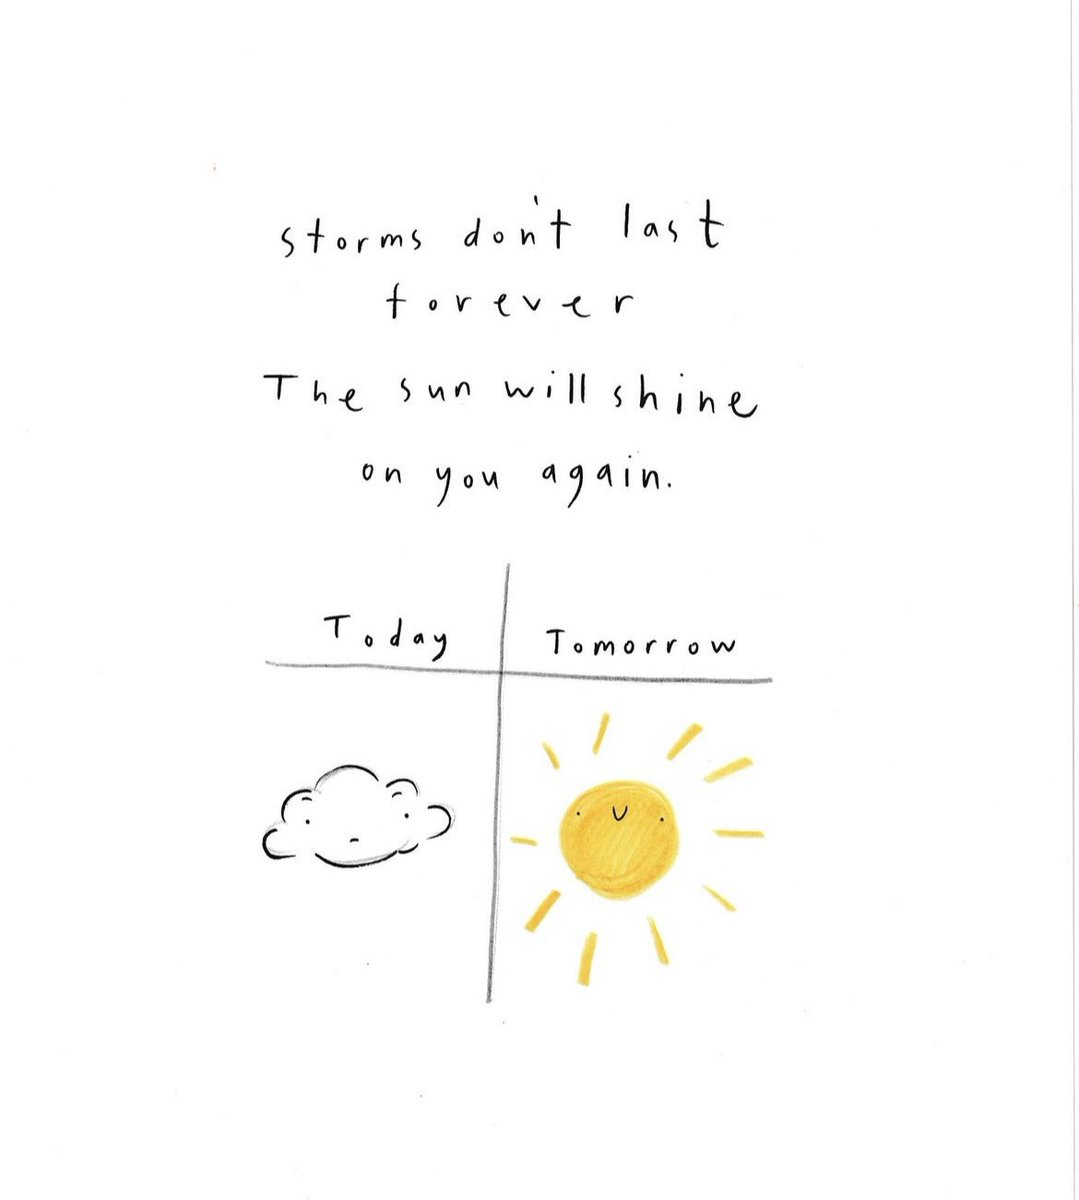 storms don't last
forever
The sun will shine
on you again.
Today Tomorrow